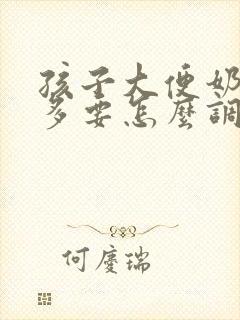 孩子大便奶
多要怎麼調
何慶瑞